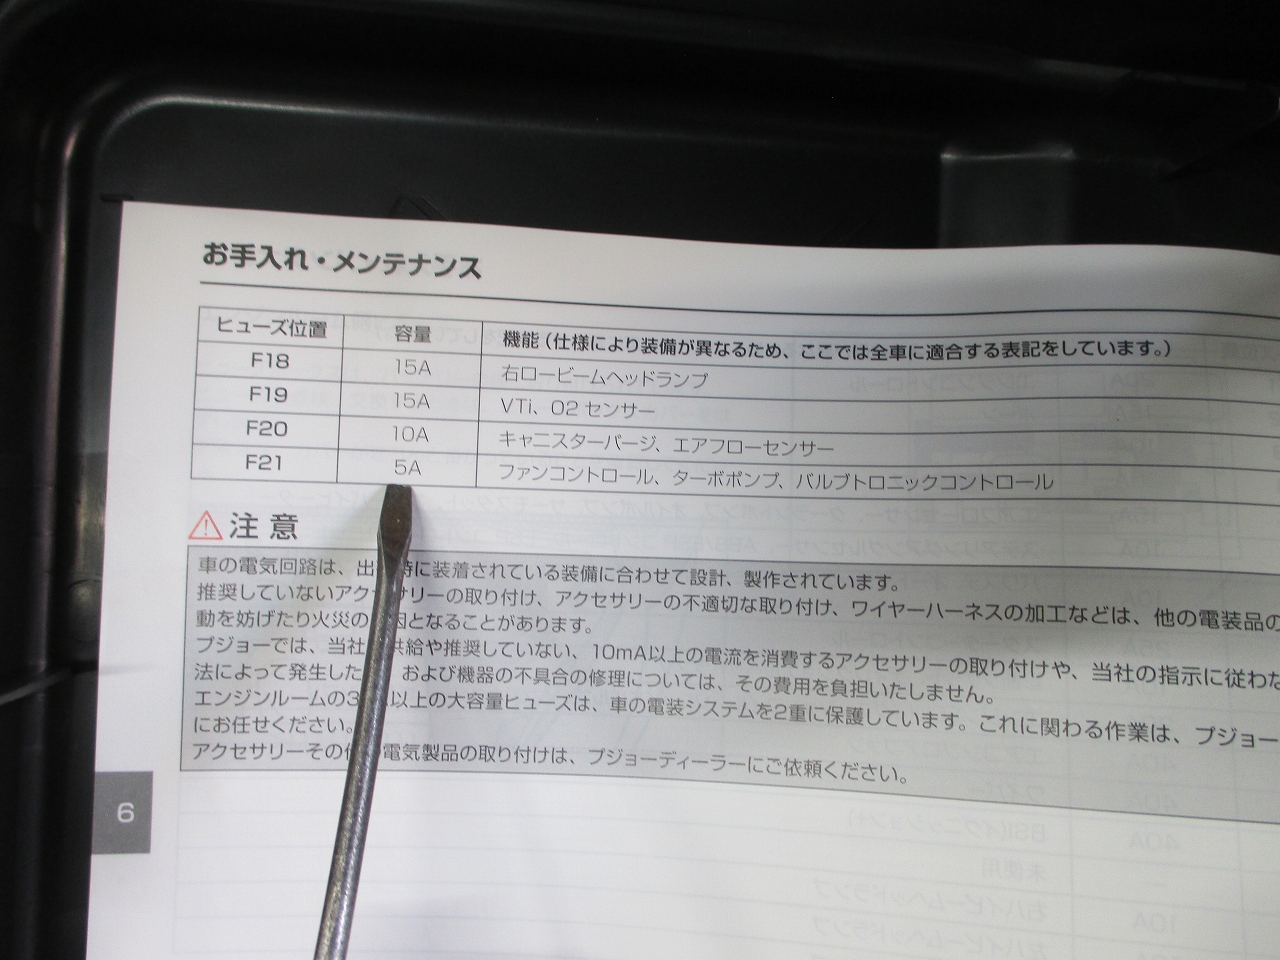 お手入れ・メンテナンス
ヒューズ位置 容量 機能(仕様により装備が異なるため、ここでは全車に適合する表記をしています。)
F18 15A 右ロービームヘッドランプ
F19 15A VTi、O2 センサー
F20 10A キャニスターパージ、エアフローセンサー
F21 5A ファンコントロール、ターボポンプ、バルブトロニックコントロール
注意
車の電気回路は、出 時に装着されている装備に合わせて設計、製作されています。
推奨していないアクセサリーの取り付け、アクセサリーの不適切な取り付け、ワイヤーハーネスの加工などは、他の電装品の
動を妨げたり火災の 因となることがあります。
プジョーでは、当社 供給や推奨していない、10mA以上の電流を消費するアクセサリーの取り付けや、当社の指示に従わな
法によって発生した 、および機器の不具合の修理については、その費用を負担いたしません。
エンジンルームの3 以上の大容量ヒューズは、車の電装システムを2重に保護しています。これに関わる作業は、プジョー
にお任せください。
アクセサリーその他 電気製品の取り付けは、プジョーディーラーにご依頼ください。
6